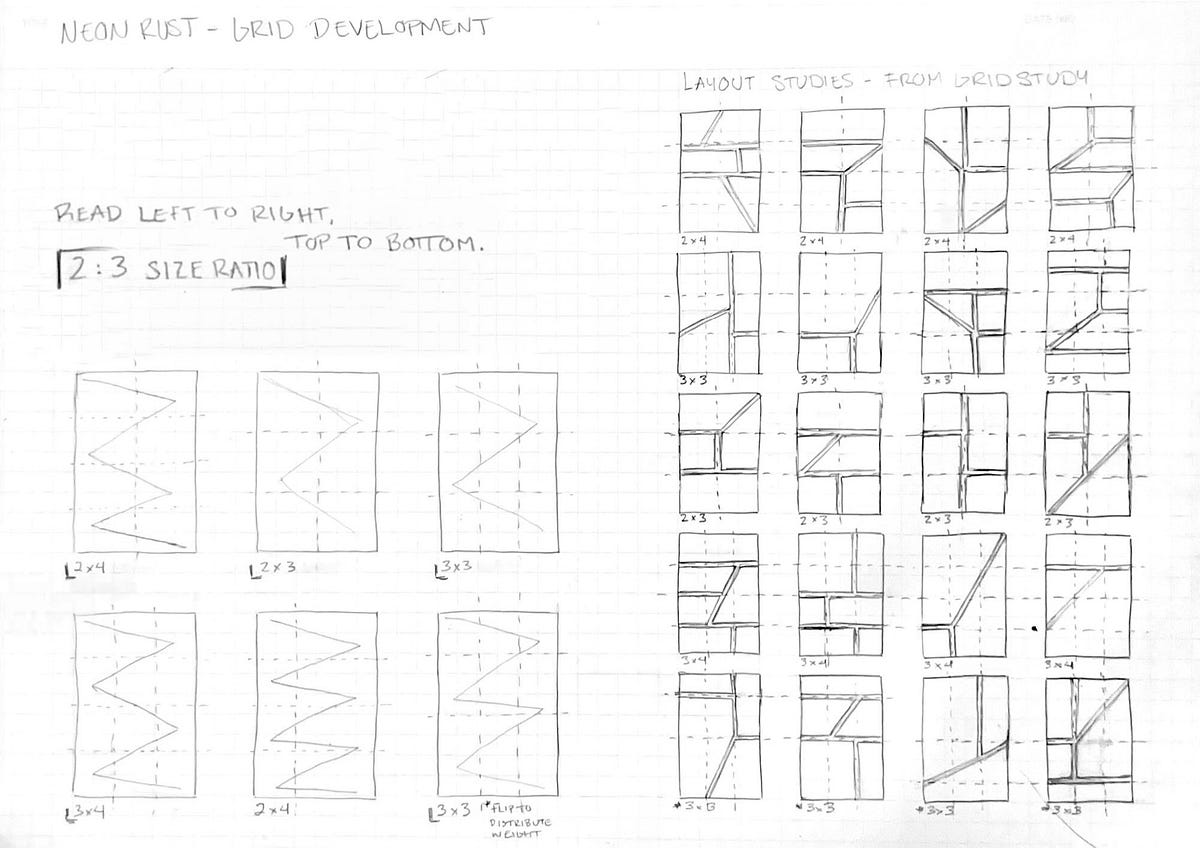 NEON RUST - GRID DEVELOPMENT
DATE
LAYOUT STUDIES - FROM GRID STUDY
READ LEFT TO RIGHT,
TOP TO BOTTOM.
2:3 SIZE RATIO
2x4
2x3
3x3
3x4
2x4
3x3 * FLIP TO
DISTRIBUTE
WEIGHT
2x4 2x4 2x4 2x4
3x3 3x3 3x3 3x3
2x3 2x3 2x3 2x3
3x4 3x4 3x4 3x4
*3x3 *3x3 *3x3 *3x3